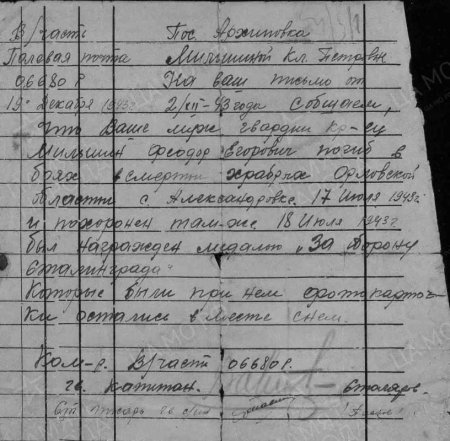 В/часть Пос. Архиповка
Палавая почта Милышиной Кл. Петровне
06680 Р На ваш письмо от
19 Декабря 1943г 2/XII-43 года собщаем,
что Ваше муж гвардии кр-ец
Милышин Феодор Егорович погиб в
боях смертю храбрых Орловской
области с. Александровка 17 Июля 1943г
и похоронен там-же 18 Июля 1943г
был награжден медалью "За оборону
Сталинграда"
Которые были при нем фотокарточ-
ки остались вместе с ним.
Ком-р. В/части 06680 Р.
гв. капитан. Столяров.
Ст. писарь гв с/на